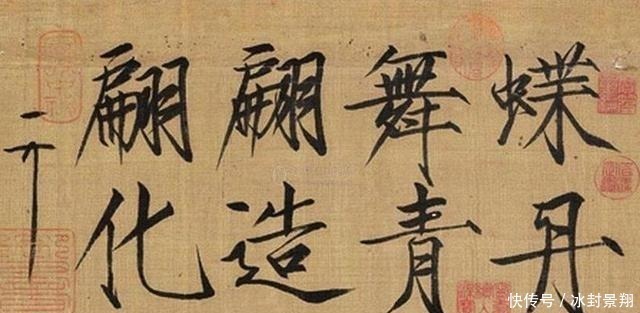 蝶舞翩翩
丹青造化
快传号/冰封景翔